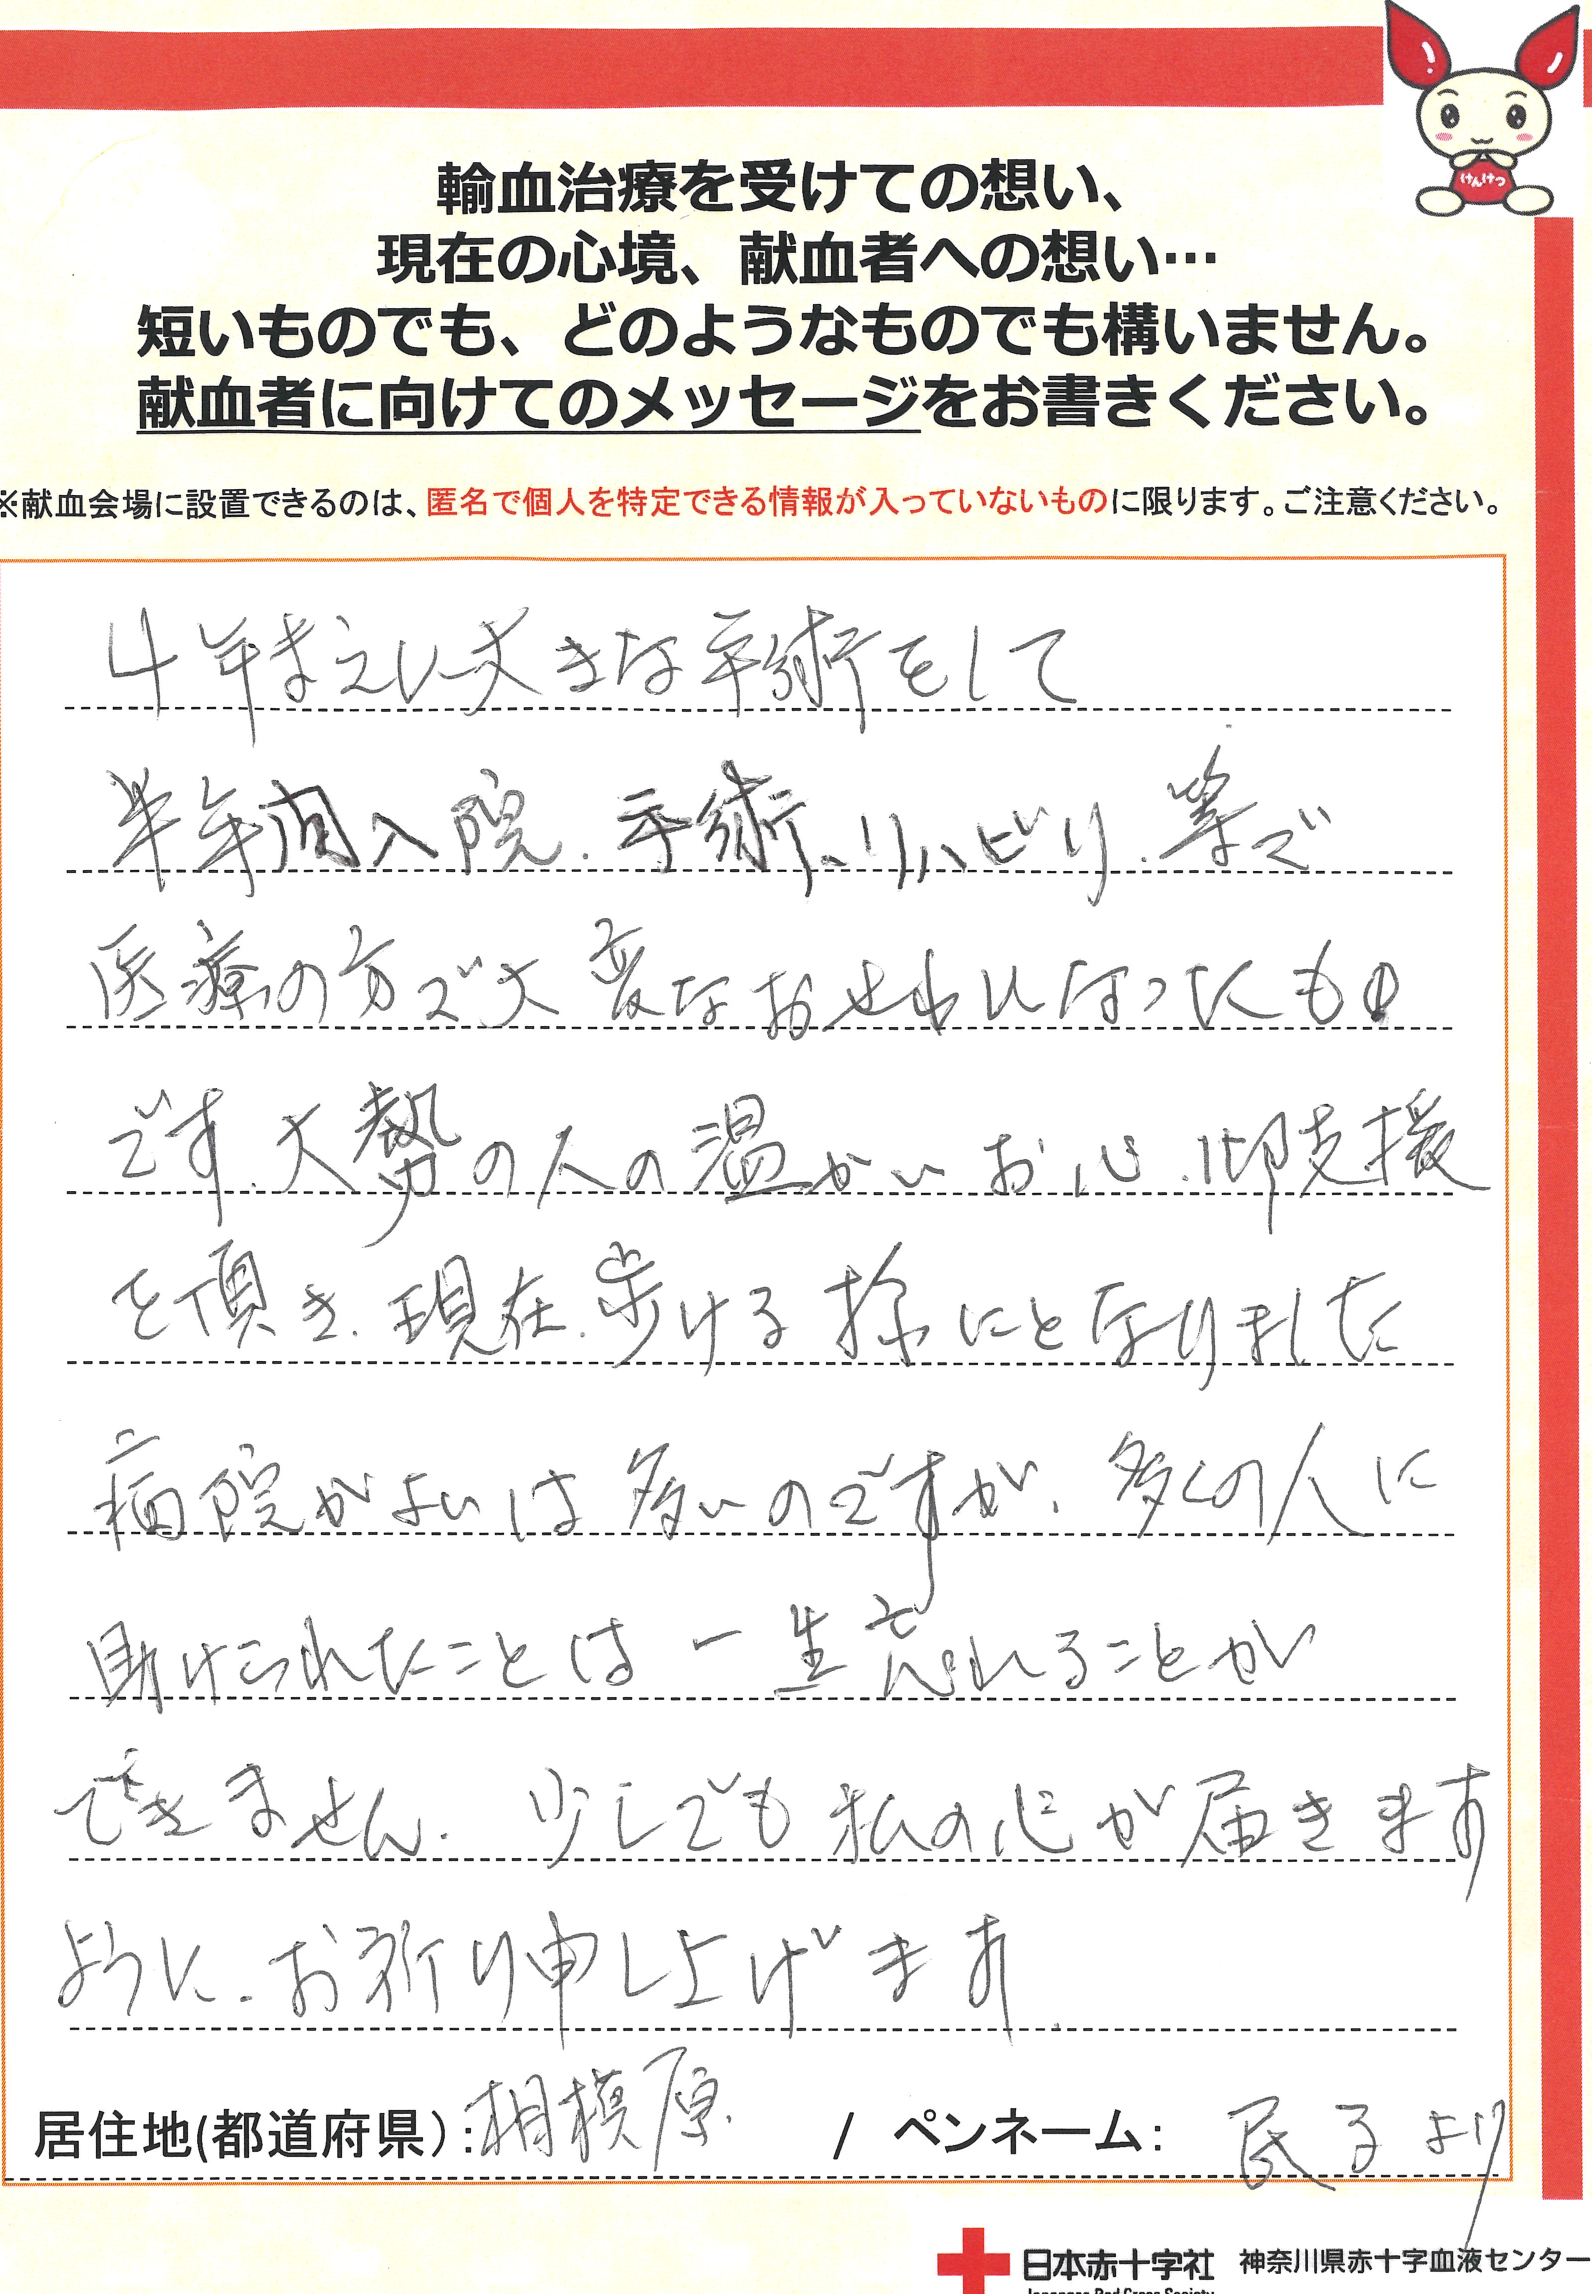 けんけつ
輸血治療を受けての想い、
現在の心境、献血者への想い…
短いものでも、どのようなものでも構いません。
献血者に向けてのメッセージをお書きください。
※献血会場に設置できるのは、匿名で個人を特定できる情報が入っていないものに限ります。ご注意ください。
4年まえに大きな手術をして
半年間入院.手術、リハビリ.等で
医療の方で大変なおせわになったもの
です.大勢の人の温かいお心.御支援
を頂き.現在.歩ける様にとなりました
病院がよいは多いのですが、多くの人に
助けられたことは一生忘れることが
できません.少しでも私の心が届きます
ように.お祈り申し上げます.
居住地(都道府県):相模原. / ペンネーム: 民子より
日本赤十字社 神奈川県赤十字血液センター
Japanese Red Cross Society